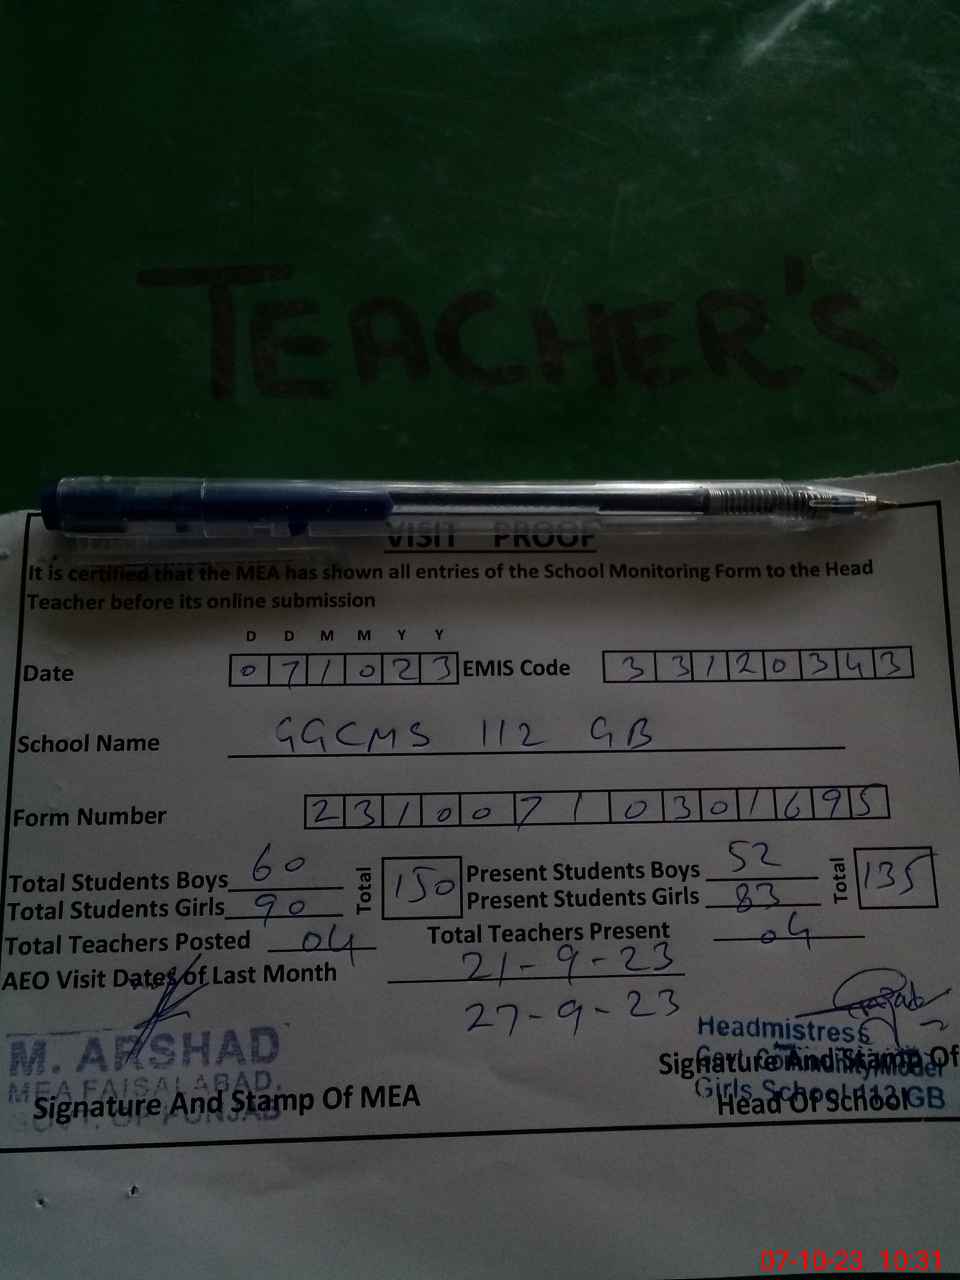 TEACHER'S
VISIT PROOF
It is certified that the MEA has shown all entries of the School Monitoring Form to the Head
Teacher before its online submission
D D M M Y Y
Date 0 7 1 0 2 3 EMIS Code 3 3 1 2 0 3 4 3
School Name GGCMS 112 GB
Form Number 2 3 1 0 0 7 1 0 3 0 1 6 9 5
Total Students Boys 60 Total 150 Present Students Boys 52 Total 135
Total Students Girls 90 Present Students Girls 83
Total Teachers Posted 04 Total Teachers Present 04
AEO Visit Dates of Last Month 21-9-23
27-9-23
M. ARSHAD
MEA FAISALABAD.
GOVT. OF PUNJAB
Signature And Stamp Of MEA
Headmistress
Govt. Community Model
Girls School 112 GB
Signature And Stamp Of
Head Of School
07-10-23 10:31